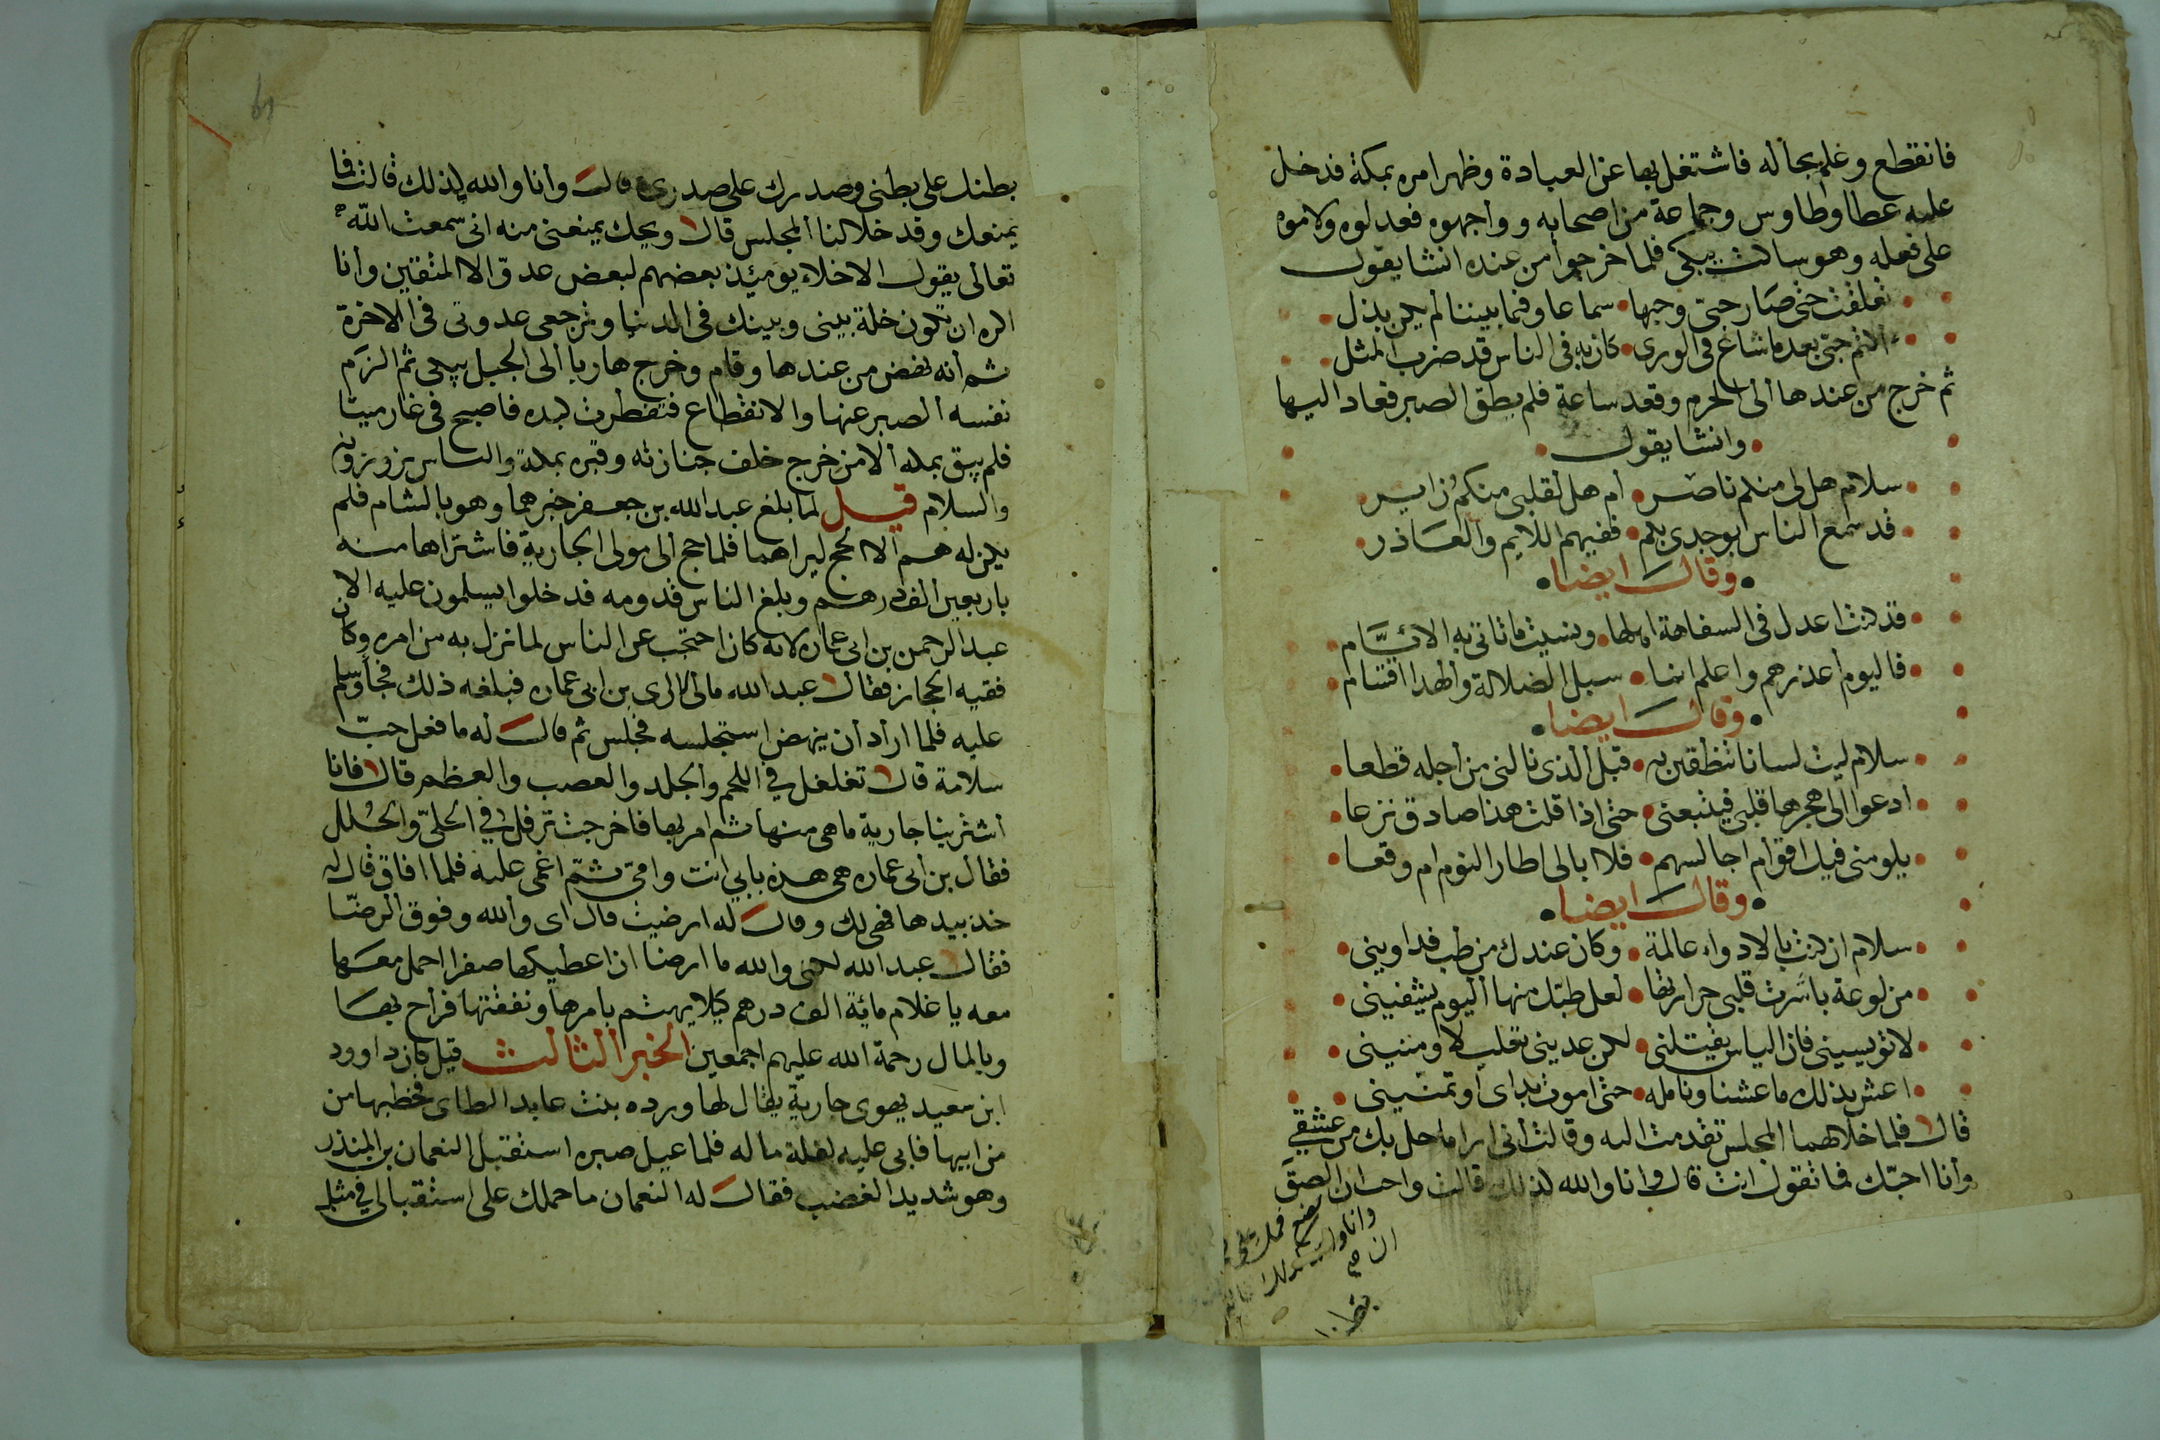 فانقطع وغلبحاله فاشتغل بها عن العبادة وظهر امره بمكة فدخل
عليه عطا وطاوس وجماعة من اصحابه وواجهوه فعدلوه ولاموه
على فعله وهو ساكت يبكى فلما خرجوا من عنده انشا يقول
تغلغت حتى صار حبّى وحبها سماعا وفيما بيننا لم يكن بذل
ءاكتم حبّى بعد ما شاع فى الورى كان به فى الناس قد ضرب المثل
ثم خرج من عندها الى الحرم وقعد ساعة فلم يطق الصبر فعاد اليها
وانشا يقول
سلام هل لى منكم ناصر أم هل لقلبى منكم زاير
قد سمع الناس بوجدى بكم ففيهم اللايم والعاذر
وقال ايضا
قد كنت اعدل فى السفاهة اهلها ونسيت ما تاتى به الايّام
فاليوم أعذرهم واعلم انما سبل الضلالة والهدا اقتسام
وقال ايضا
سلام ليت لسانا تنطقين به قبل الذى نالنى من أجله قطعا
ادعوا الى هجرها قلبى فيتبعنى حتى اذا قلت هذا صادق نزعا
يلومنى فيك اقوام اجالسهم فلا ابالى اطار النوم ام وقعا
وقال ايضا
سلام ان كنت بالادواء عالمة وكان عندك من طب فداوينى
من لوعة باشرت قلبى حرارتها لعل طبّك منها اليوم يشفينى
لا تويسينى فان الياس يقتلنى لكن عدينى بقلب لا ومنينى
اعش بذلك ما عشنا ونامله حتى اموت بداى او تمنينى
قال فلما خلا لهما المجلس تقدمت اليه وقالت أنى ارا ما حل بك من عشقي
وأنا احبّك فما تقول انت قال وانا والله كذلك قالت واحب ان الصق
بطنك على بطنى وصدرك على صدرى قال وأنا والله كذلك قالت فما
يمنعك وقد خلا لنا المجلس قال ويحك يمنعنى منه انى سمعت الله
تعالى يقول الاخلاء يومئذ بعضهم لبعض عدوّ الا المتقين وأنا
اكره ان تكون خلة بينى وبينك فى الدنيا وترجعى عدوتى فى الاخرة
ثم أنه نهض من عندها وقام وخرج هاربا ألى الجبل يبكى ثم الزم
نفسه الصبر عنها والانقطاع فتفطرت كبده فاصبح فى غار ميتا
فلم يبق بمكه ألا من خرج خلف جنازته وقبره بمكة والناس يزورونه
والسلام قيل لما بلغ عبد الله بن جعفر خبرهما وهو بالشام فلم
يكن له هم الا الحج ليراهما فلما حج اتى مولى الجارية فاشتراها منه
باربعين الف درهم وبلغ الناس قدومه فدخلوا يسلمون عليه الا
عبد الرحمن بن ابى عماره لانه كان احتجب عن الناس لما نزل به من امره وكان
فقيه الحجاز فقال عبد الله مالى لا ارى بن ابى عماره فبلغه ذلك فجا وسلم
عليه فلما اراد أن ينهض استجلسه فجلس ثم قال له ما فعل حبّ
سلامة قال تغلغل في اللحم والجلد والعصب والعظم قال فانا
أشترينا جارية ما هى منها ثم امر بها فاخرجت ترفل في الحلىّ والحلل
فقال بن أبى عماره هى هذه بابي انت وامى ثم اغمى عليه فلما افاق قال له
خذ بيدها فهى لك وقال له ارضيت قال اى والله وفوق الرضا
فقال عبد الله لكنى والله ما ارضا ان اعطيكها صفرا احمل معها
معه يا غلام مائة الف درهم كيلا يهتم بامرها ونفقتها فراح بها
وبالمال رحمة الله عليهم اجمعين الخبر الثالث قيل كان داوود
ابن سعيد يهوى جارية يقال لها ورده بنت عابد الطاى فخطبها من
من ابيها فابى عليه لقلة ماله فلما عيل صبره استقبل النعمان بن المنذر
وهو شديد الغضب فقال له النعمان ما حملك على استقبالى في مثل